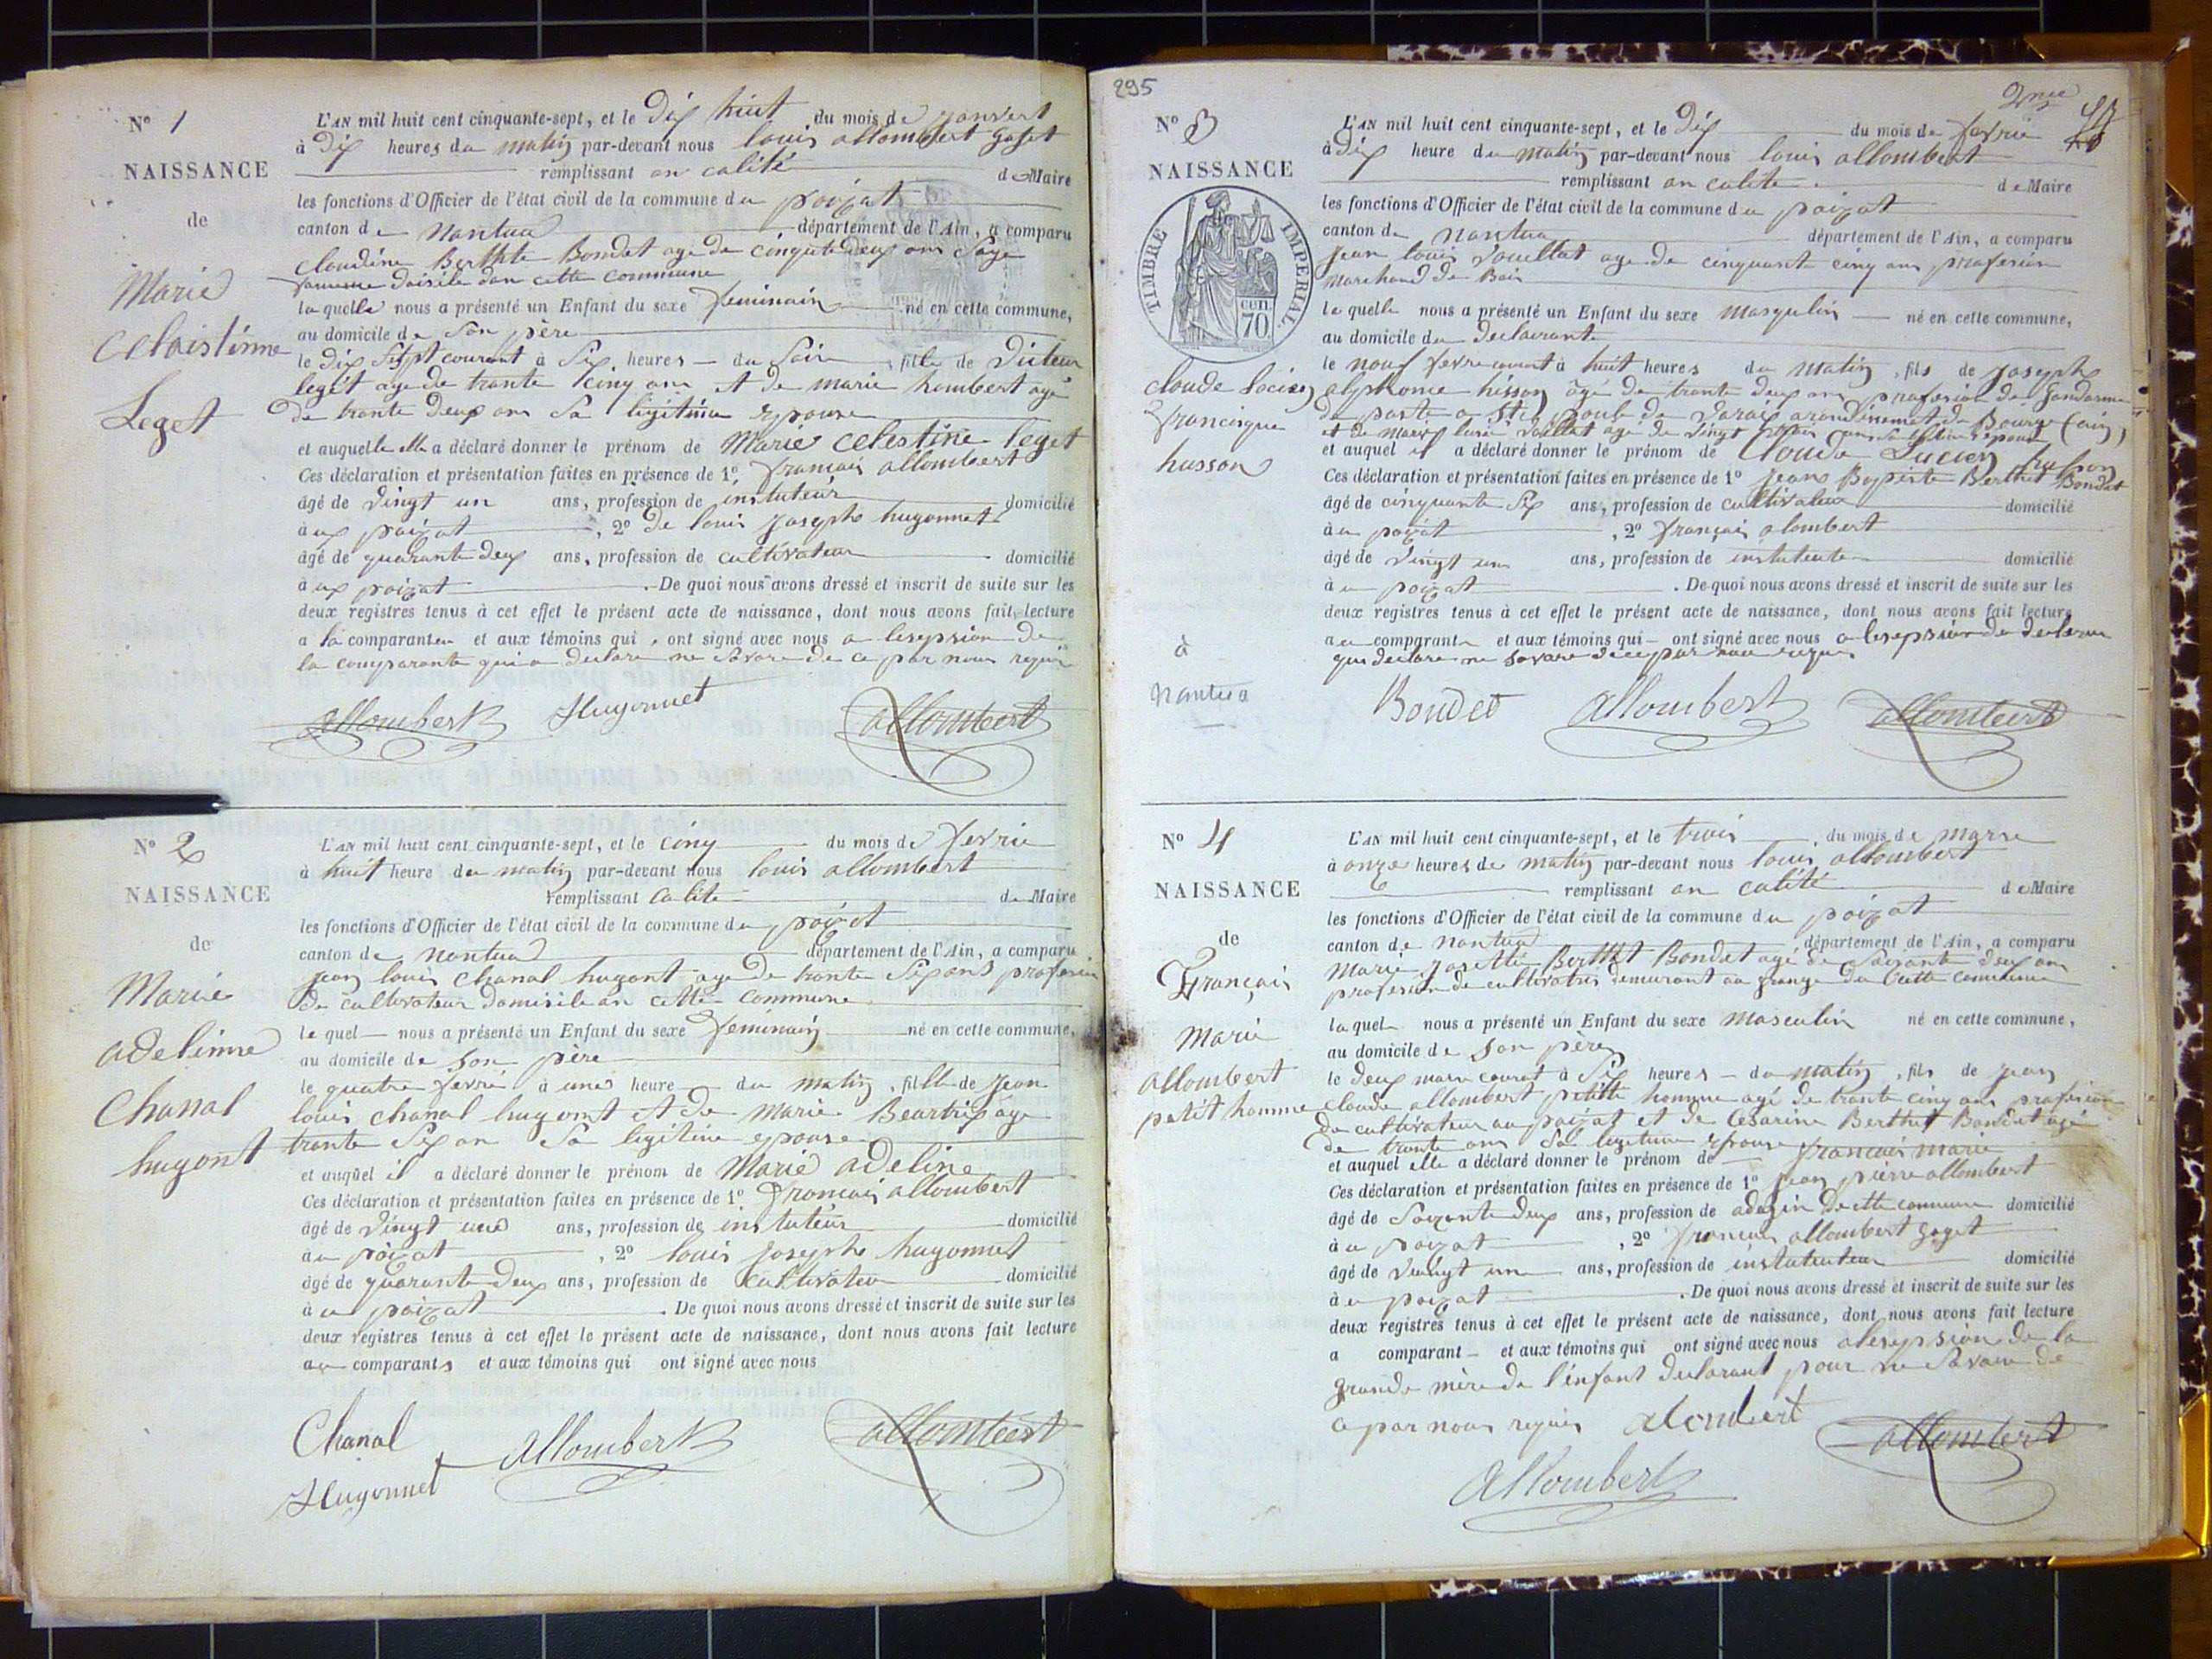 N° 1
NAISSANCE
de
Marie
celaistinne
Leget
L'AN mil huit cent cinquante-sept, et le Dix huit du mois de janviert
à Dix heures du matin par-devant nous louis allombert gojet
remplissant an calité de Maire
les fonctions d'Officier de l'état civil de la commune du poizat
canton de Nantua département de l'Ain, a comparu
Claudine Berthte Bondet age de cinqute deux ans Sage
famme doisile dan cette commune
la quelle nous a présenté un Enfant du sexe feminain né en cette commune,
au domicile de Son père
le dix Sept courant à Six heures du Soir, fille de Victeur
legét age de trante cinq ans et de marie humbert agé
de trante deux ans Sa ligitime epouse
et auquelle elle a déclaré donner le prénom de Marie celestine leget
Ces déclaration et présentation faites en présence de 1° francais allombert
âgé de Vingt un ans, profession de instuteur domicilié
à au poizat, 2° De louis Joseph hugonnet
âgé de quarante deux ans, profession de cultivateur domicilié
à au poizat. De quoi nous avons dressé et inscrit de suite sur les
deux registres tenus à cet effet le présent acte de naissance, dont nous avons fait lecture
a la comparante et aux témoins qui ont signé avec nous a lesepsion de
la comparante qui a declare ne Savoire de ce par nous requis
allombert Hugonnet allombert
N° 2
NAISSANCE
de
Marie
adelinne
Chanal
hugont
L'AN mil huit cent cinquante-sept, et le cinq du mois de fevrie
à huit heure du matin par-devant nous louis allombert
remplissant calite de Maire
les fonctions d'Officier de l'état civil de la commune du poizat
canton de nantua département de l'Ain, a comparu
jean louis chanal hugont age de trante Six ans profesion
de cultivateur domisile an cette commune
le quel nous a présenté un Enfant du sexe feminain né en cette commune,
au domicile de son père
le quatre fevrié à une heure du matin, fille de Jean
louis chanal hugont et de Marie Beartrix age
trante Six an Sa legitime epouse
et auquel il a déclaré donner le prénom de Marie adeline
Ces déclaration et présentation faites en présence de 1° francais allombert
âgé de Vingt une ans, profession de instuteur domicilié
à au poizat, 2° louis Joseph hugonnet
âgé de quarante deux ans, profession de cultivateur domicilié
à au poizat. De quoi nous avons dressé et inscrit de suite sur les
deux registres tenus à cet effet le présent acte de naissance, dont nous avons fait lecture
au comparants et aux témoins qui ont signé avec nous
Chanal allombert allombert
Hugonnet
295
2me
N° 3
NAISSANCE
TIMBRE IMPERIAL
CENT. 70
claude locien
francisque
husson
à
nantua
L'AN mil huit cent cinquante-sept, et le Dix du mois de fevrie
à Dix heure du matin par-devant nous louis allombert
remplissant an calite de Maire
les fonctions d'Officier de l'état civil de la commune du poizat
canton de nantua département de l'Ain, a comparu
jean louis Vouillat age de cinquante cinq ans profesion
marchand de Bois
le quelle nous a présenté un Enfant du sexe masqulin né en cette commune,
au domicile du declairante
le nouf fevre courant à huit heures du matin, fils de Joseph
alphonse husson agé de trante deux ans profesion de gandarme
de poste a arondinemet de Bourge (ain)
et de Marie agé de vingt
et auquel il a déclaré donner le prénom de Claude Lucien husson
Ces déclaration et présentation faites en présence de 1° Jean Bapiste Berthet Bondet
âgé de cinquante Six ans, profession de cultivateur domicilié
à au poizat, 2° français alombert
âgé de Vingt un ans, profession de instututeur domicilié
à au poizat. De quoi nous avons dressé et inscrit de suite sur les
deux registres tenus à cet effet le présent acte de naissance, dont nous avons fait lecture
au comparant et aux témoins qui ont signé avec nous a lesepsion de
qui declare ne savoire de ce par nous requis
Bondet allombert allombert
N° 4
NAISSANCE
de
Français
Marie
allombert
petit homme
L'AN mil huit cent cinquante-sept, et le trois du mois de marse
à onze heures de matin par-devant nous louis allombert
remplissant an calité de Maire
les fonctions d'Officier de l'état civil de la commune du poizat
canton de nantua département de l'Ain, a comparu
Marie Josette Berthet Bondet agé de Soixante deux an
profession de cultivatris demurant au grange du Cette commune
la quel nous a présenté un Enfant du sexe masculin né en cette commune,
au domicile de Son père
le deux mars courat à Six heures du matin, fils de jean
claude allombert petitte homme agé de trante cinq ans profesion
de cultivateur au poizat et de Cesarine Berthet Bondet agé
de trante ans Sa legitime epouse
et auquel elle a déclaré donner le prénom de francais marie
Ces déclaration et présentation faites en présence de 1° jean pierre allombert
âgé de Soixante deux ans, profession de adgin de cette commune domicilié
à au poizat, 2° francais allombert gojet
âgé de Vingt un ans, profession de instututeur domicilié
à au poizat. De quoi nous avons dressé et inscrit de suite sur les
deux registres tenus à cet effet le présent acte de naissance, dont nous avons fait lecture
a comparant et aux témoins qui ont signé avec nous alesepsion de la
grande mère de l'enfant declarant pour ne Savoire de
ce par nous requis alombert allombert
allombert